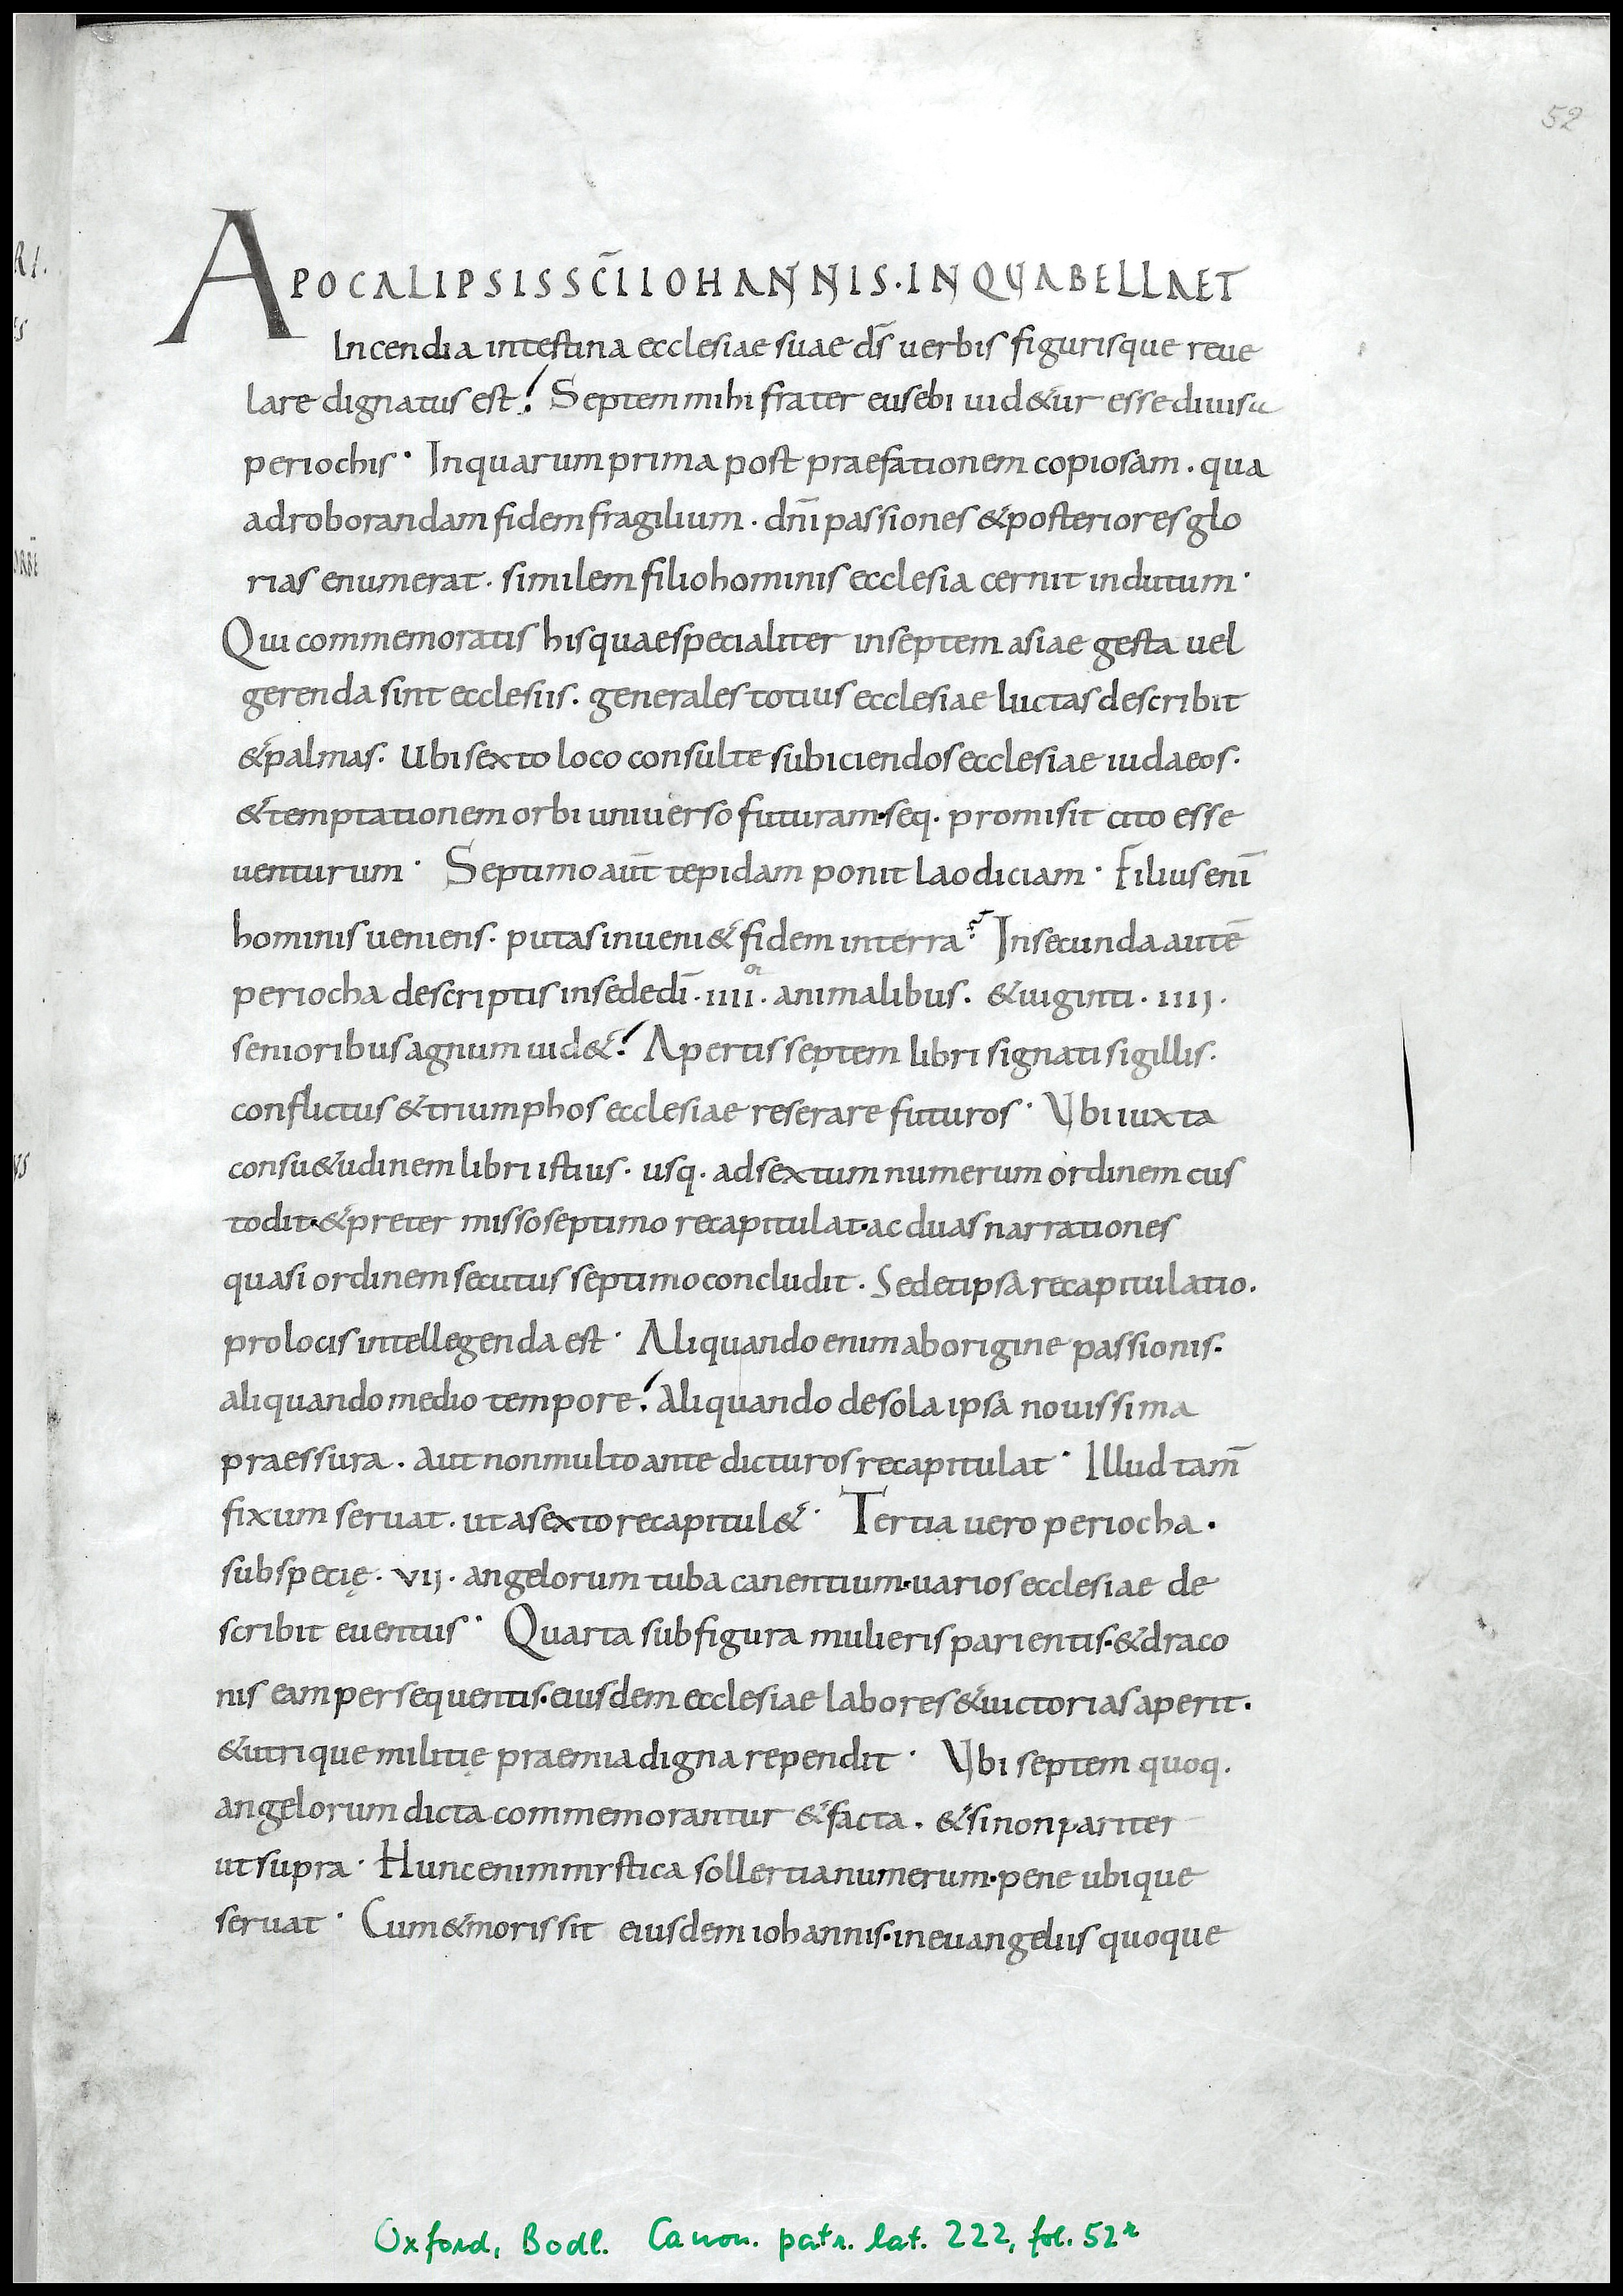 52
APOCALIPSIS SCĪ IOHANNIS · IN QUA BELLA ET
Incendia intestina ecclesiae suae ds̄ uerbis figurisque reue
lare dignatus est! Septem mihi frater eusebi uid&ur esse diuisa
periochis · In quarum prima post praefationem copiosam · qua
ad roborandam fidem fragilium · dn̄i passiones & posteriores glo
rias enumerat · similem filio hominis ecclesia cernit indutum ·
Qui commemoratis his quae specialiter in septem asiae gesta uel
gerenda sint ecclesiis · generales totius ecclesiae luctas describit
& palmas · Ubi sexto loco consulte subiciendos ecclesiae iudaeos ·
& temptationem orbi uniuerso futuram · seq · promisit cito esse
uenturum · Septimo aut̄ tepidam ponit laodiciam · Filius enī
hominis ueniens · putas inueni& fidem in terra? In secunda autē
periocha descriptis in sede dī · iiii or · animalibus · & uiginti · iiij ·
senioribus agnum uid&! Apertis septem libri signati sigillis ·
conflictus & triumphos ecclesiae reserare futuros · Ubi iuxta
consu&udinem libri istius · usq · ad sextum numerum ordinem cus
todit · & pretermisso septimo recapitulat · ac duas narrationes
quasi ordinem secutus septimo concludit · Sed et ipsa recapitulatio ·
pro locis intellegenda est · Aliquando enim ab origine passionis ·
aliquando medio tempore! Aliquando de sola ipsa nouissima
praessura · aut non multo ante dicturos recapitulat · Illud tam̄
fixum seruat · ut a sexto recapitul& · Tertia uero periocha ·
sub specię · vij · angelorum tuba canentium · uarios ecclesiae de
scribit euentus · Quarta sub figura mulieris parientis · & draco
nis eam persequentis · eiusdem ecclesiae labores & uictorias aperit ·
& utrique militię praemia digna rependit · Ubi septem quoq ·
angelorum dicta commemorantur & facta · & si non pariter
ut supra · Hunc enim mrstica sollertia numerum · pene ubique
seruat · Cum & moris sit eiusdem iohannis · in euangeliis quoque
Oxford, Bodl. Canon. patr. lat. 222, fol. 52r